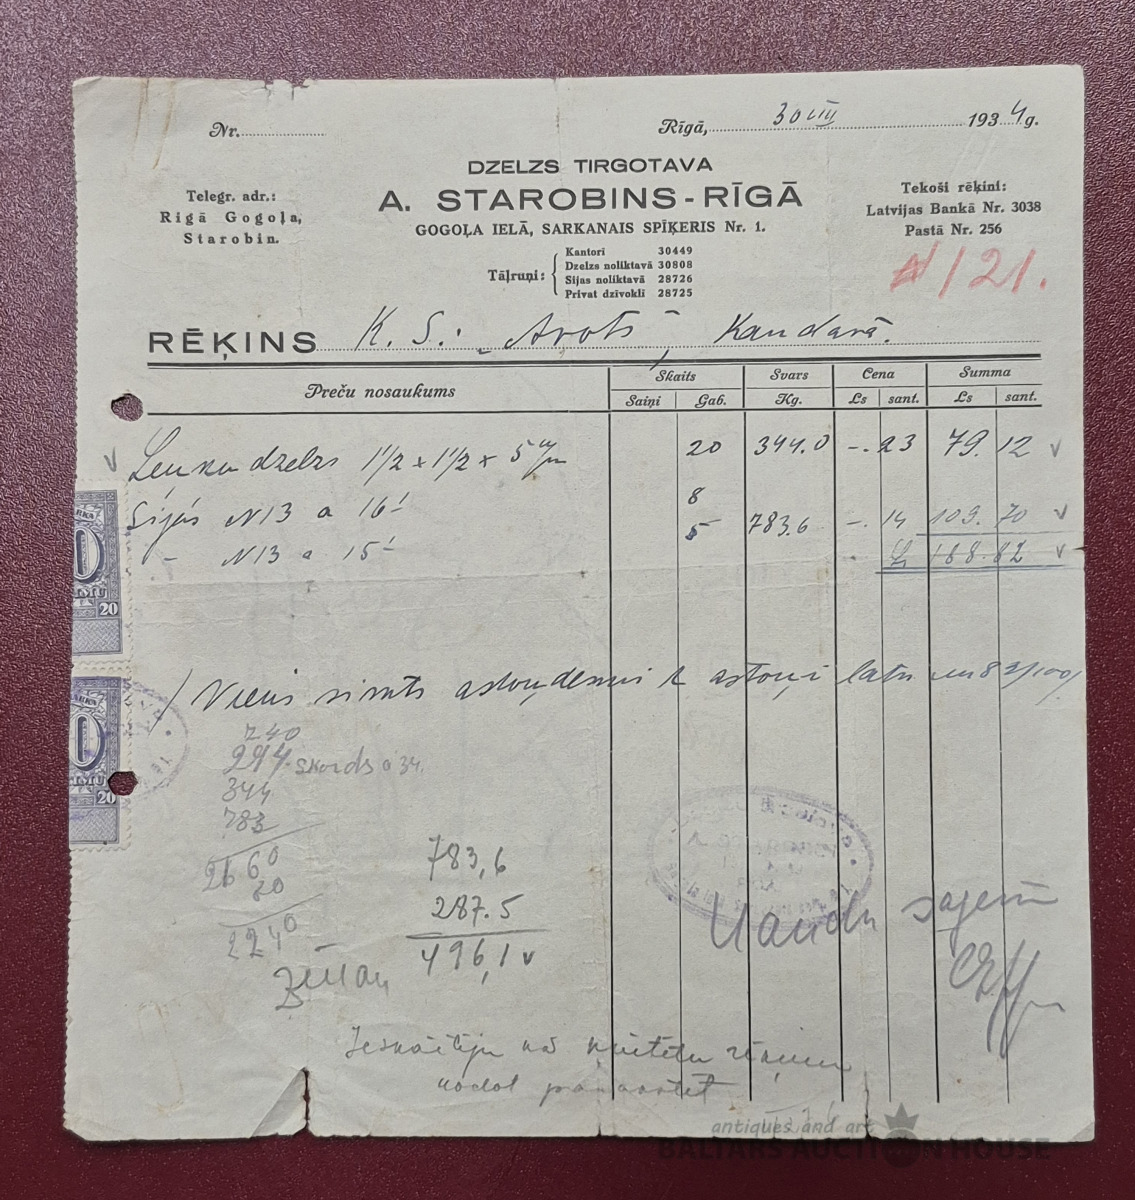 Nr.
Rīgā, 30 VIII 1934 g.
DZELZS TIRGOTAVA
A. STAROBINS - RĪGĀ
GOGOĻA IELĀ, SARKANAIS SPĪĶERIS Nr. 1.
Telegr. adr.:
Rigā Gogoļa,
Starobin.
Tekoši rēķini:
Latvijas Bankā Nr. 3038
Pastā Nr. 256
Tāļruņi:
Kantori 30449
Dzelzs noliktavā 30808
Sijas noliktavā 28726
Privat dzīvokli 28725
№ 121.
RĒĶINS K. S. "Avots", Kandavā.
Preču nosaukums Skaits Svars Cena Summa
Saiņi Gab. Kg. Ls sant. Ls sant.
Leņķa dzelzs 1 1/2 x 1 1/2 x 5 m/m 20 344.0 -. 23 79. 12
Sijas N13 a 16' 8
783.6 -. 14 109. 70
- N13 a 15' 5
Ls 188.82
Viens simts astoņdesmit astoņi lati un 82/100
240
294 skārds a 34.
344
783
2660
20
2240
783,6
287.5
496,1
Naudu saņēmu
20
20
antiques and art
BALTARS AUCTION HOUSE